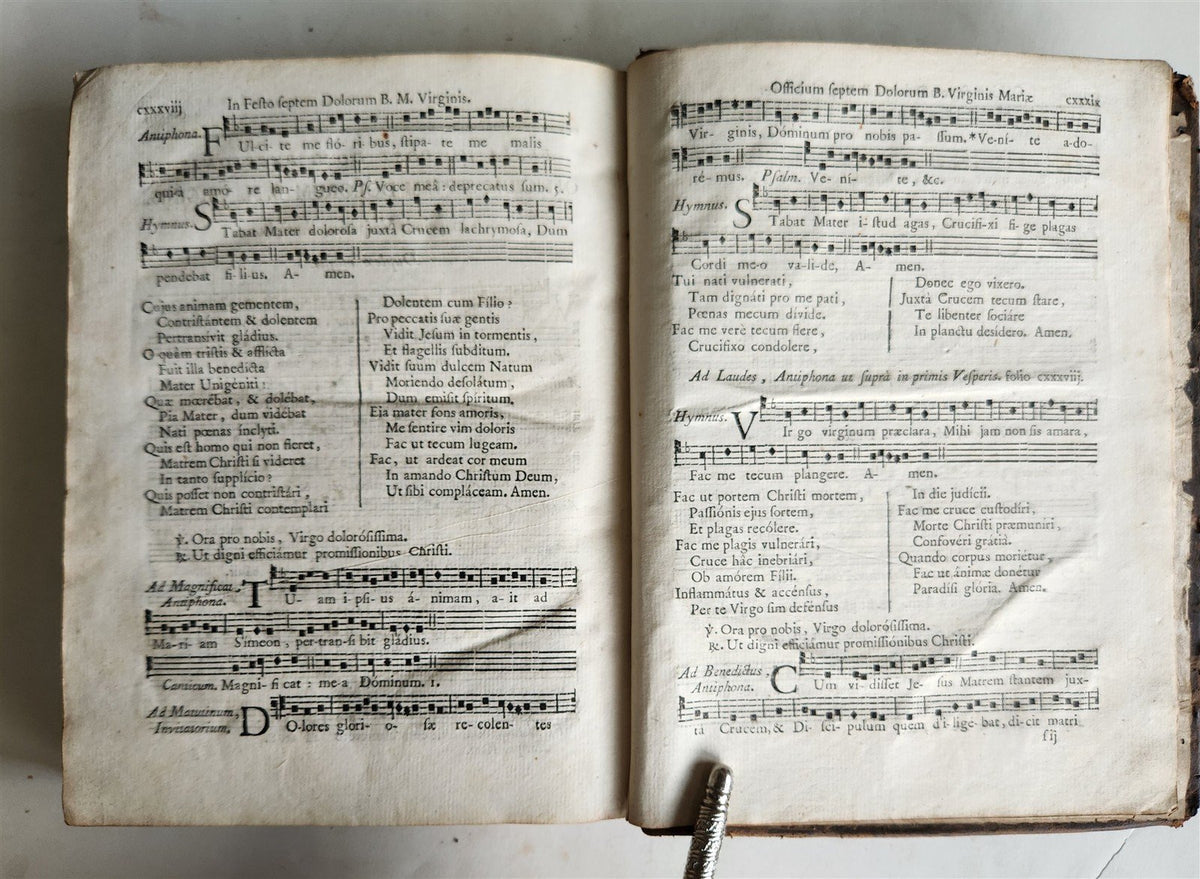 cxxxviij
In Festo septem Dolorum B. M. Virginis.
Antiphona. F Ul-ci-te me fló-ri-bus, stipa-te me malis
quià amo-re lan-gueo. Ps. Voce meâ: deprecatus sum. 5.
Hymnus. S Tabat Mater dolorosa juxtà Crucem lachrymosa, Dum
pendebat fi-li-us. A-men.
Cujus animam gementem,
Contristántem & dolentem
Pertransivit gládius.
O quàm tristis & afflicta
Fuit illa benedicta
Mater Unigeniti:
Quæ mœrébat, & dolébat,
Pia Mater, dum vidébat
Nati pœnas ínclyti.
Quis est homo qui non fleret,
Matrem Christi si videret
In tanto supplício?
Quis posset non contristári,
Matrem Christi contemplari
Dolentem cum Fílio?
Pro peccatis suæ gentis
Vidit Jesum in tormentis,
Et flagellis subditum.
Vidit suum dulcem Natum
Moriendo desolátum,
Dum emisit spíritum.
Eja mater fons amoris,
Me sentire vim doloris
Fac ut tecum lugeam.
Fac, ut ardeat cor meum
In amando Christum Deum,
Ut sibi compláceam. Amen.
℣. Ora pro nobis, Virgo dolorósissima.
℟. Ut digni efficiámur promissionibus Christi.
Ad Magnificat, Antiphona. T U-am i-psi-us á-nimam, a-it ad
Ma-ri-am Simeon, per-tran-si bit gládius.
Canticum. Magni-fi cat: me-a Dóminum. 1.
Ad Matutinum, Invitatorium, D O-lores glori-o-sæ re-colen-tes
Officium septem Dolorum B. Virginis Mariæ
cxxxix
Vir-ginis, Dóminum pro nobis pa-ssum.* Ve-ní-te a-do-
ré-mus. Psalm. Ve-ni-te, &c.
Hymnus. S Tabat Mater i-stud agas, Crucifi-xi fi-ge plagas
Cordi me-o va-li-de, A-men.
Tui nati vulnerati,
Tam dignáti pro me pati,
Pœnas mecum dívide.
Fac me verè tecum flere,
Crucifixo condolere,
Donec ego vixero.
Juxtà Crucem tecum stare,
Te libenter sociáre
In planctu desídero. Amen.
Ad Laudes, Antiphona ut suprà in primis Vesperis. folio cxxxviij.
Hymnus. V Ir go virginum præclara, Mihi jam non sis amara,
Fac me tecum plangere. A-men.
Fac ut portem Christi mortem,
Passiónis ejus sortem,
Et plagas recólere.
Fac me plagis vulnerári,
Cruce hâc inebriári,
Ob amórem Fílii.
Inflammátus & accénsus,
Per te Virgo sim defénsus
In die judícii.
Fac me cruce custodíri,
Morte Christi præmuniri,
Confovéri grátiâ.
Quando corpus moriétur,
Fac ut ánimæ donétur
Paradisi glória. Amen.
℣. Ora pro nobis, Virgo dolorósissima.
℟. Ut digni efficiámur promissiónibus Christi.
Ad Benedictus, Antiphona. C Um vi-disset Je-sus Matrem stantem jux-
tà Crucem, & Di-sci-pulum quem di-lige-bat, di-cit matri
sij